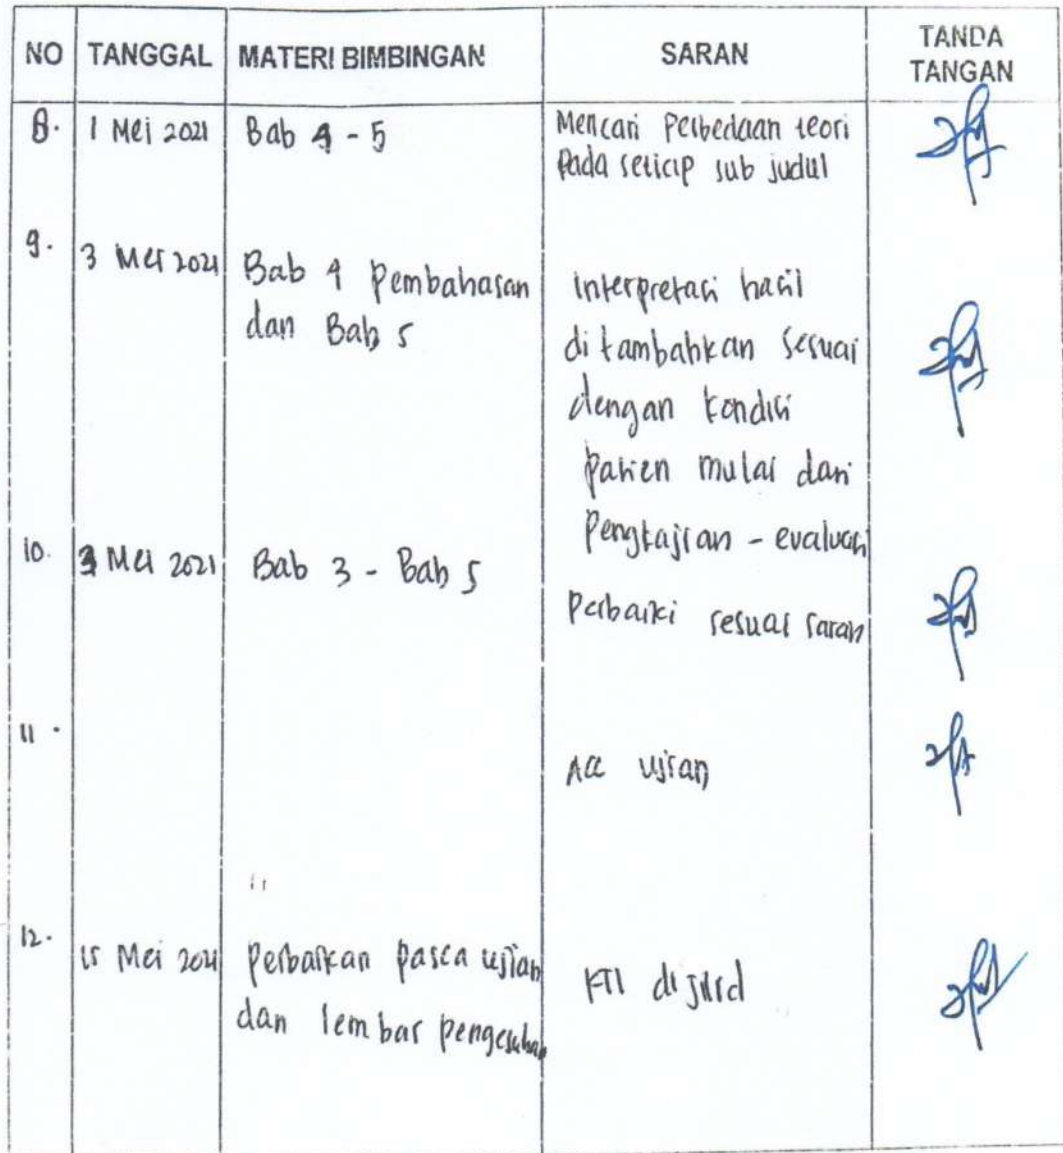 NO TANGGAL MATERI BIMBINGAN SARAN TANDA TANGAN
8. 1 Mei 2021 Bab 4 - 5 Mencari Perbedaan teori
Pada setiap sub judul
9. 3 Mei 2021 Bab 4 Pembahasan
dan Bab 5
Interpretasi hasil
ditambahkan sesuai
dengan kondisi
Pasien mulai dari
Pengkajian - evaluasi
10. 3 Mei 2021 Bab 3 - Bab 5
Perbaiki sesuai saran
11.
Acc ujian
12. 15 Mei 2021 Perbaikan pasca ujian
dan lembar pengesahan
KTI dijilid